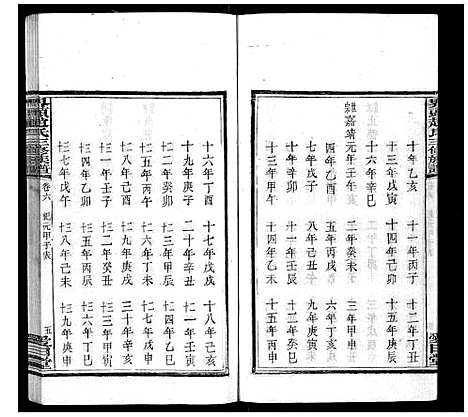 十一年丙子 十二年丁丑
十三年戊寅 十四年己卯 十五年庚辰
嘉靖元年壬午 二年癸未 三年甲申
四年乙酉 五年丙戌 六年丁亥
七年戊子 八年己丑 九年庚寅
十年辛卯 十一年壬辰 十二年癸巳
十三年甲午 十四年乙未 十五年丙申
十六年丁酉 十七年戊戌 十八年己亥
十九年庚子 二十年辛丑 廿一年壬寅
廿二年癸卯 廿三年甲辰 廿四年乙巳
廿五年丙午 廿六年丁未 廿七年戊申
廿八年己酉 廿九年庚戌 三十年辛亥
卅一年壬子 卅二年癸丑 卅三年甲寅
卅四年乙卯 卅五年丙辰 卅六年丁巳
卅七年戊午 卅八年己未 卅九年庚申
趙氏三修族譜 卷六 紀元甲子表 五 愛日堂